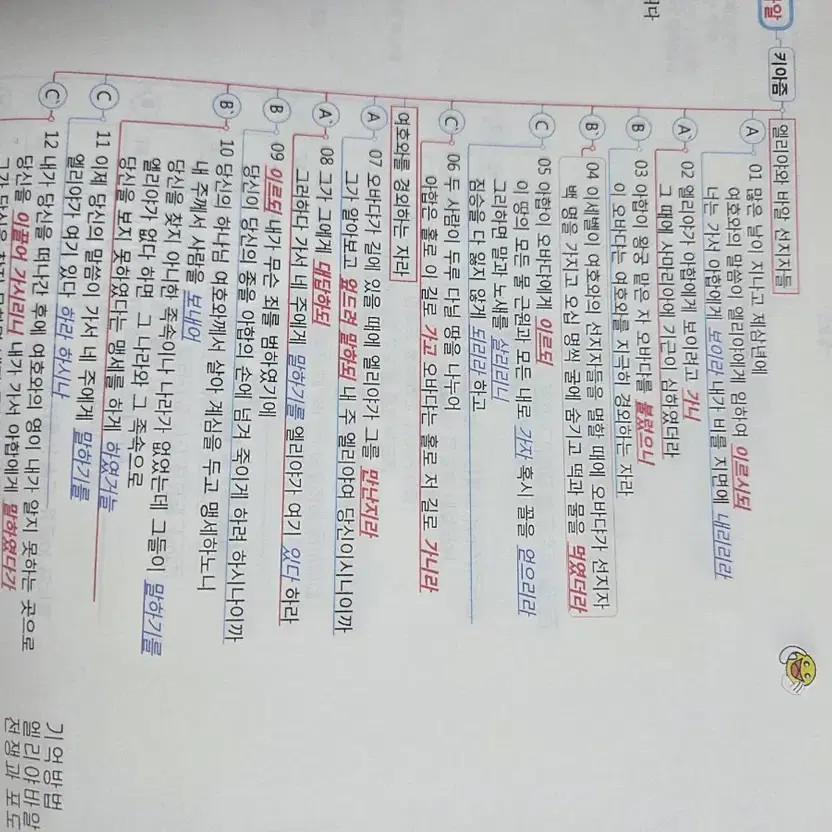 알
키아즘
다
엘리야와 바알 선지자들
A 01 많은 날이 지나고 제삼년에
여호와의 말씀이 엘리야에게 임하여 이르시되
너는 가서 아합에게 보이라 내가 비를 지면에 내리리라
A' 02 엘리야가 아합에게 보이려고 가니
그 때에 사마리아에 기근이 심하였더라
B 03 아합이 왕궁 맡은 자 오바댜를 불렀으니
이 오바댜는 여호와를 지극히 경외하는 자라
B' 04 이세벨이 여호와의 선지자들을 멸할 때에 오바댜가 선지자
백 명을 가지고 오십 명씩 굴에 숨기고 떡과 물을 먹였더라
C 05 아합이 오바댜에게 이르되
이 땅의 모든 물 근원과 모든 내로 가자 혹시 꼴을 얻으리라
그리하면 말과 노새를 살리리니
짐승을 다 잃지 않게 되리라 하고
C' 06 두 사람이 두루 다닐 땅을 나누어
아합은 홀로 이 길로 가고 오바댜는 홀로 저 길로 가니라
여호와를 경외하는 자라
A 07 오바댜가 길에 있을 때에 엘리야가 그를 만난지라
그가 알아보고 엎드려 말하되 내 주 엘리야여 당신이시니이까
A' 08 그가 그에게 대답하되
그러하다 가서 네 주에게 말하기를 엘리야가 여기 있다 하라
B 09 이르되 내가 무슨 죄를 범하였기에
당신이 당신의 종을 아합의 손에 넘겨 죽이게 하려 하시나이까
B' 10 당신의 하나님 여호와께서 살아 계심을 두고 맹세하노니
내 주께서 사람을 보내어
당신을 찾지 아니한 족속이나 나라가 없었는데 그들이 말하기를
엘리야가 없다 하면 그 나라와 그 족속으로
당신을 보지 못하였다는 맹세를 하게 하였거늘
C 11 이제 당신의 말씀이 가서 네 주에게 말하기를
엘리야가 여기 있다 하라 하시나
C' 12 내가 당신을 떠나간 후에 여호와의 영이 내가 알지 못하는 곳으로
당신을 이끌어 가시리니 내가 가서 아합에게 말하였다가
기억방법
엘리야바알
전쟁과 포도